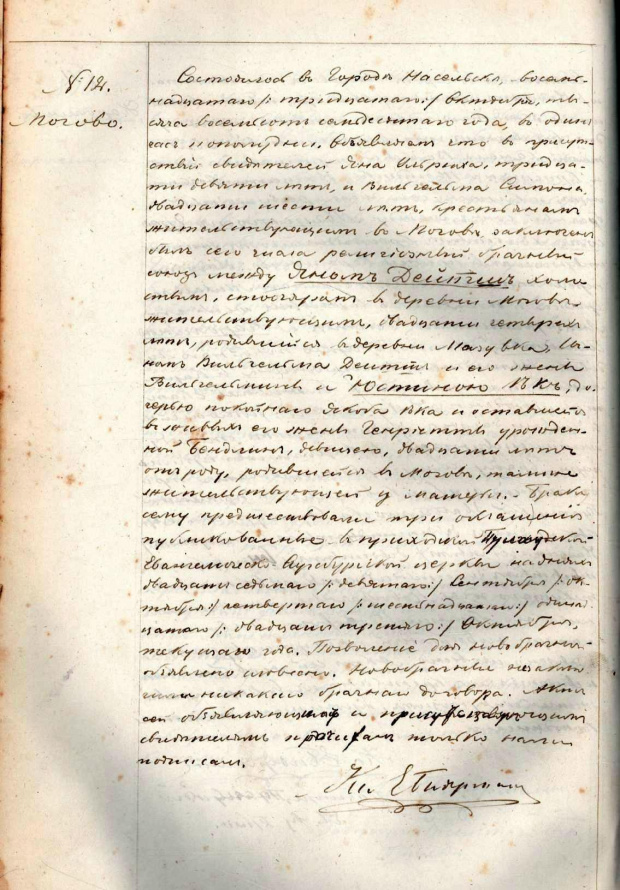 № 12.
Могово.
Состоялось в Городе Насельске, восем-
надцатаго /: тридцатаго :/ Октября, ты-
сяча восемьсот семьдесятаго года, в один
час пополудни. Объявляем что в присут-
ствии свидетелей Яна Ульриха, тридца-
ти девяти лет, и Вильгельма Симона,
двадцати шести лет, крестьянам
жительствующим в Могове, заключен
был сего числа религиозный брачный
союз между Яном Дейтш,
в деревни Могове
жительствующим, двадцати четырех
лет, родившийся в деревни Мазувка, Сы-
ном Вильгельма Дейтш и его жены
Вильгельмины и Юстиною Ѣкъ, до-
черью покойнаго Якова и оставшейся
в живых его жены Генриетты урожден-
ной Бендлин, девицею, двадцати лет
от роду, родившейся в Могове, там же
жительствующей у матери. - Браку
сему предшествовали три оглашения
публикованные в приходской Пултуской
Евангелическо Аугсбургской церкви на днях
двадцать седьмаго /: девятаго :/ Сентября /: Ок-
тября :/ четвертаго /: шестнадцатаго :/ одинад-
цатаго /: двадцать третьяго :/ Октября,
текущаго года. Позволение для новобрачных
объявлено словесно. Новобрачные не заклю-
чили никакого брачнаго договора. Акт
сей объявляющим и присутствующим
свидетелям прочитан только нами
подписан.